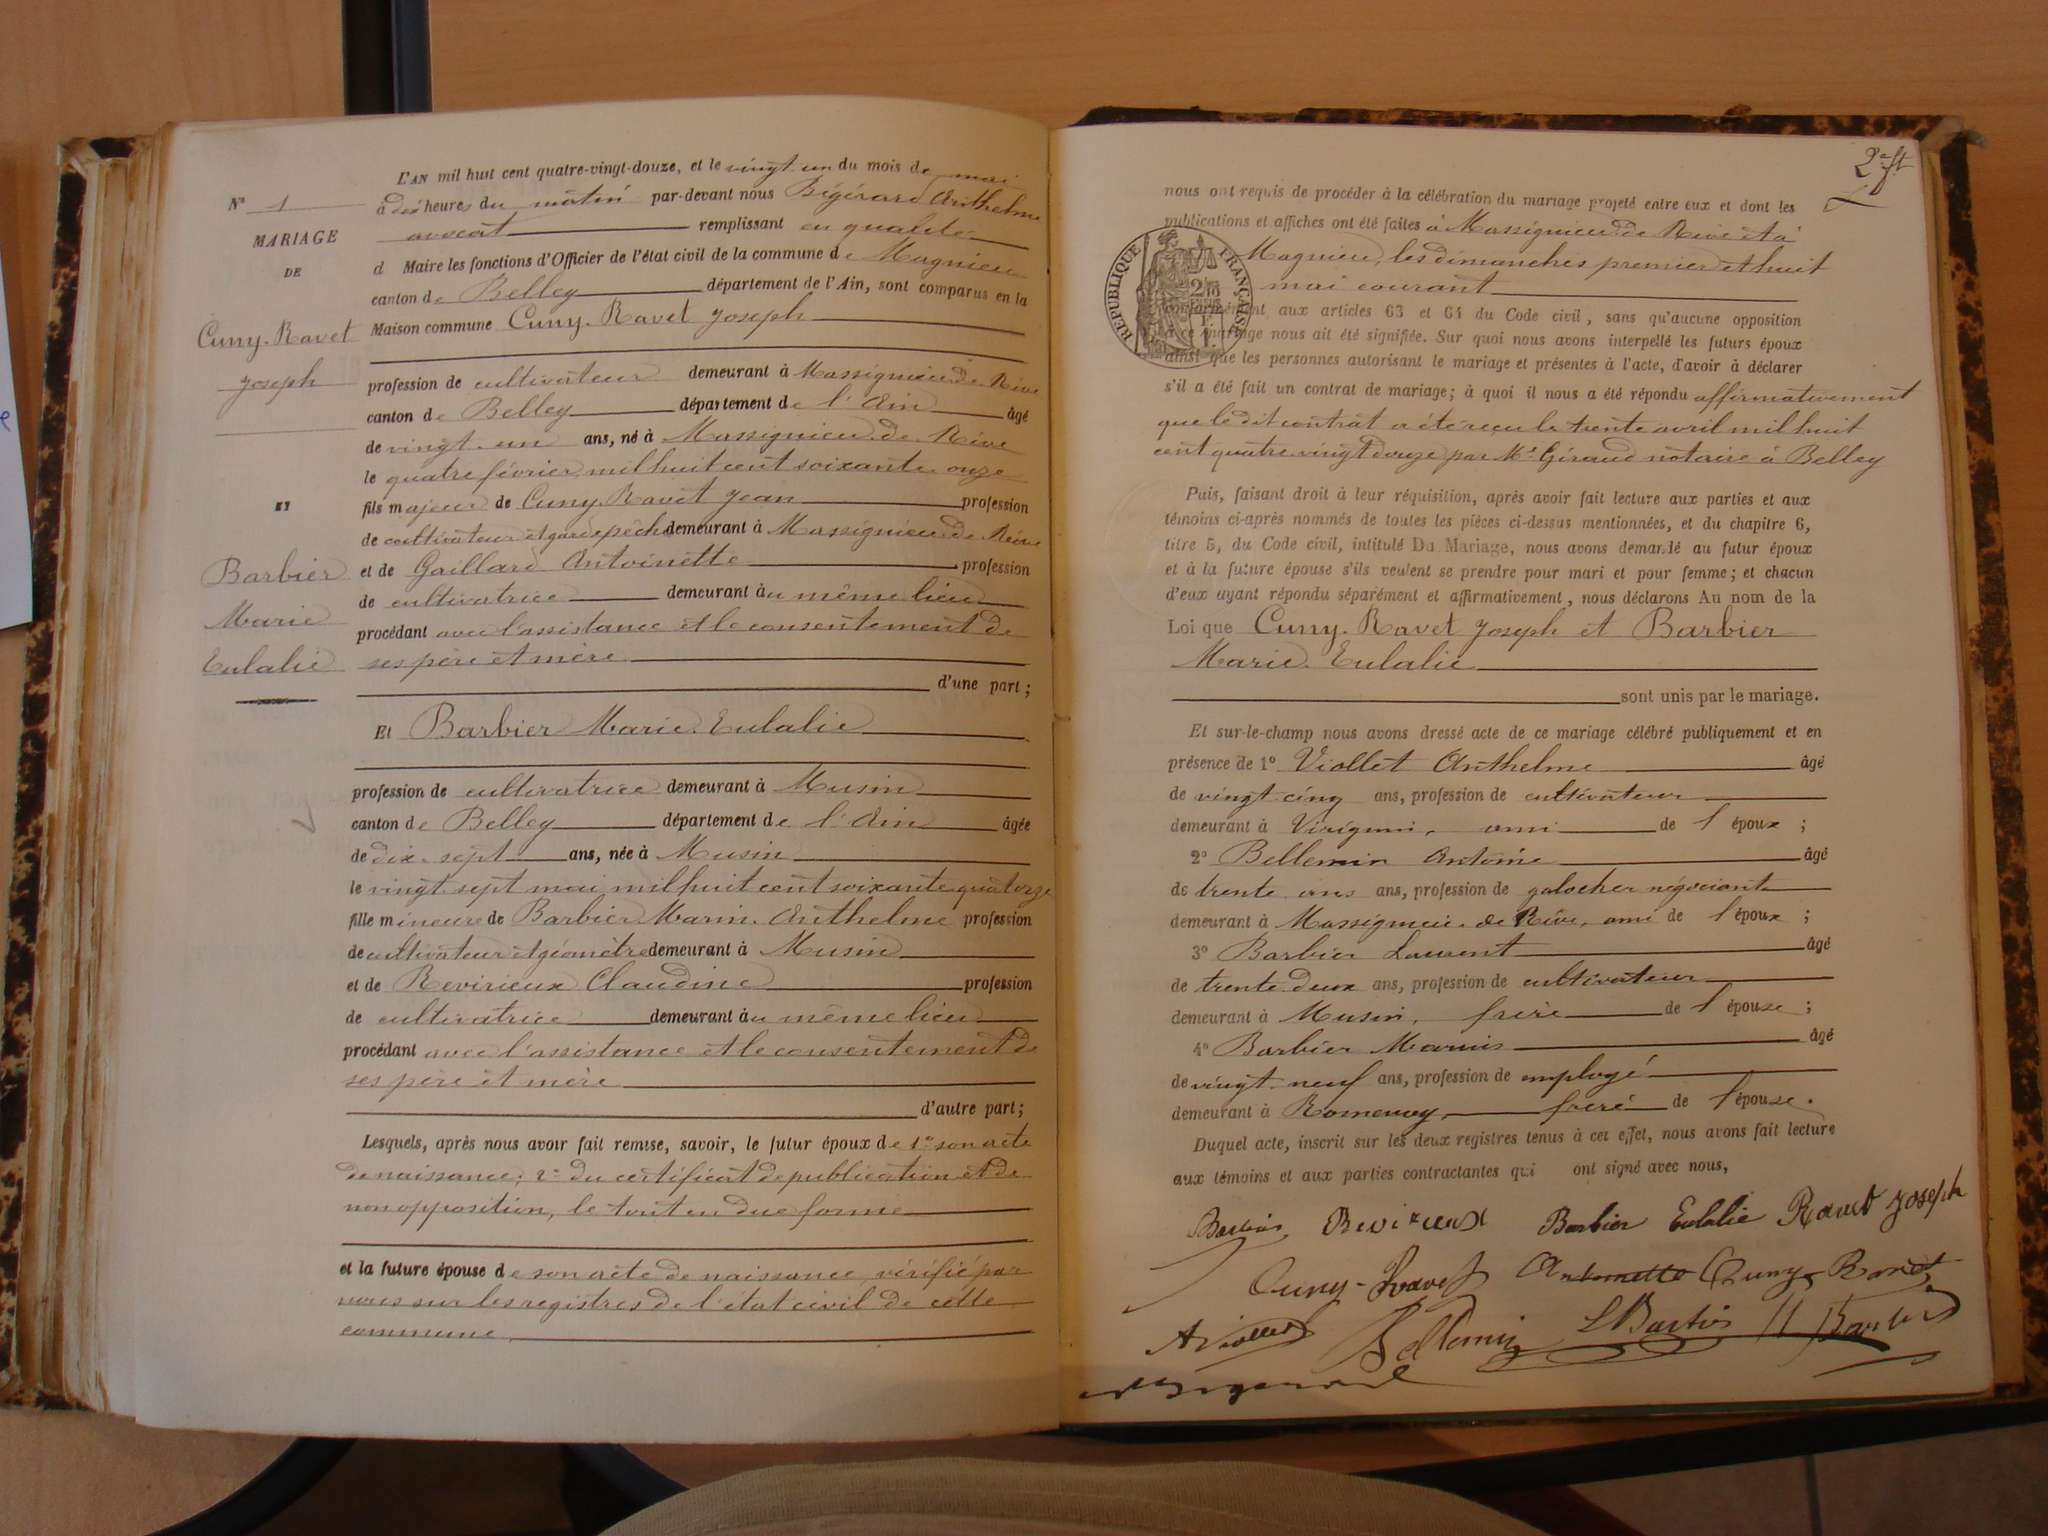 N° 1
MARIAGE
DE
Cuny-Ravet
Joseph
ET
Barbier
Marie
Eulalie
L'AN mil huit cent quatre-vingt-douze, et le vingt un du mois de mai
à dix heures du matin par-devant nous Bigérard Anthelme
avocat remplissant en qualité
d Maire les fonctions d'Officier de l'état civil de la commune de Magnieu
canton de Belley département de l'Ain, sont comparus en la
Maison commune Cuny-Ravet Joseph
profession de cultivateur demeurant à Massignieu de Rive
canton de Belley département de l'Ain âgé
de vingt-un ans, né à Massignieu de Rive
le quatre février mil huit cent soixante onze
fils majeur de Cuny-Ravet Jean profession
de cultivateur et garde pêche demeurant à Massignieu de Rive
et de Gaillard Antoinette profession
de cultivatrice demeurant au même lieu
procédant avec l'assistance et le consentement de
ses père et mère
d'une part ;
Et Barbier Marie-Eulalie
profession de cultivatrice demeurant à Musin
canton de Belley département de l'Ain âgée
de dix-sept ans, née à Musin
le vingt sept mai mil huit cent soixante quatorze
fille mineure de Barbier Marin-Anthelme profession
de cultivateur et géomètre demeurant à Musin
et de Revirieux Claudine profession
de cultivatrice demeurant au même lieu
procédant avec l'assistance et le consentement de
ses père et mère
d'autre part ;
Lesquels, après nous avoir fait remise, savoir, le futur époux de 1° son acte
de naissance, 2° du certificat de publication et de
non opposition, le tout en due forme
et la future épouse de son acte de naissance vérifié par
nous sur les registres de l'état civil de cette
commune
nous ont requis de procéder à la célébration du mariage projeté entre eux et dont les
publications et affiches ont été faites à Massignieu de Rive et à
Magnieu, les dimanches premier et huit
mai courant
RÉPUBLIQUE FRANÇAISE
conformément aux articles 63 et 64 du Code civil, sans qu'aucune opposition
à ce mariage nous ait été signifiée. Sur quoi nous avons interpellé les futurs époux
ainsi que les personnes autorisant le mariage et présentes à l'acte, d'avoir à déclarer
s'il a été fait un contrat de mariage ; à quoi il nous a été répondu affirmativement
que le dit contrat a été reçu le trente avril mil huit
cent quatre vingt douze par Me Giraud notaire à Belley
Puis, faisant droit à leur réquisition, après avoir fait lecture aux parties et aux
témoins ci-après nommés de toutes les pièces ci-dessus mentionnées, et du chapitre 6,
titre 5, du Code civil, intitulé Du Mariage, nous avons demandé au futur époux
et à la future épouse s'ils veulent se prendre pour mari et pour femme ; et chacun
d'eux ayant répondu séparément et affirmativement, nous déclarons Au nom de la
Loi que Cuny-Ravet Joseph et Barbier
Marie-Eulalie
sont unis par le mariage.
Et sur-le-champ nous avons dressé acte de ce mariage célébré publiquement et en
présence de 1° Viollet Anthelme âgé
de vingt cinq ans, profession de cultivateur
demeurant à Virignin, ami de l'époux ;
2° Bellemin Antoine âgé
de trente ans ans, profession de galocher négociant
demeurant à Massignieu de Rive, ami de l'époux ;
3° Barbier Laurent âgé
de trente deux ans, profession de cultivateur
demeurant à Musin, frère de l'épouse ;
4° Barbier Marius âgé
de vingt-neuf ans, profession de employé
demeurant à Romenay, frère de l'épouse.
Duquel acte, inscrit sur les deux registres tenus à cet effet, nous avons fait lecture
aux témoins et aux parties contractantes qui ont signé avec nous,
Barbier Revirieux Barbier Eulalie Ravet Joseph
Cuny-Ravet Antoinette Cuny-Ravet
A Viollet Bellemin L Barbier M Barbier